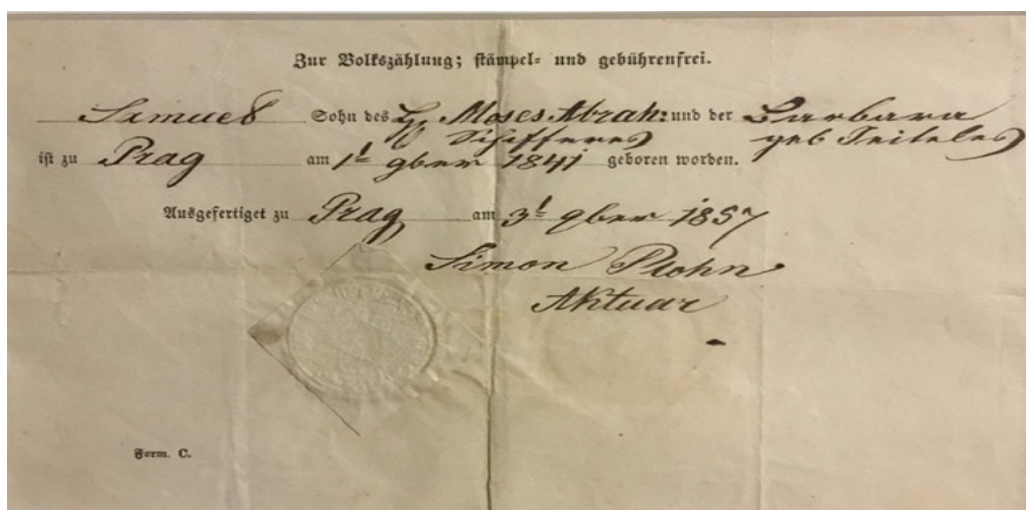 Zur Volkszählung; stämpel- und gebührenfrei.
Samuel Sohn des H. Moses Abrah: und der Barbara
Schefferes geb Teiteles
ist zu Prag am 1t 9ber 1841 geboren worden.
Ausgefertiget zu Prag am 3t 9ber 1857
Simon Plohn
Aktuar
Form. C.